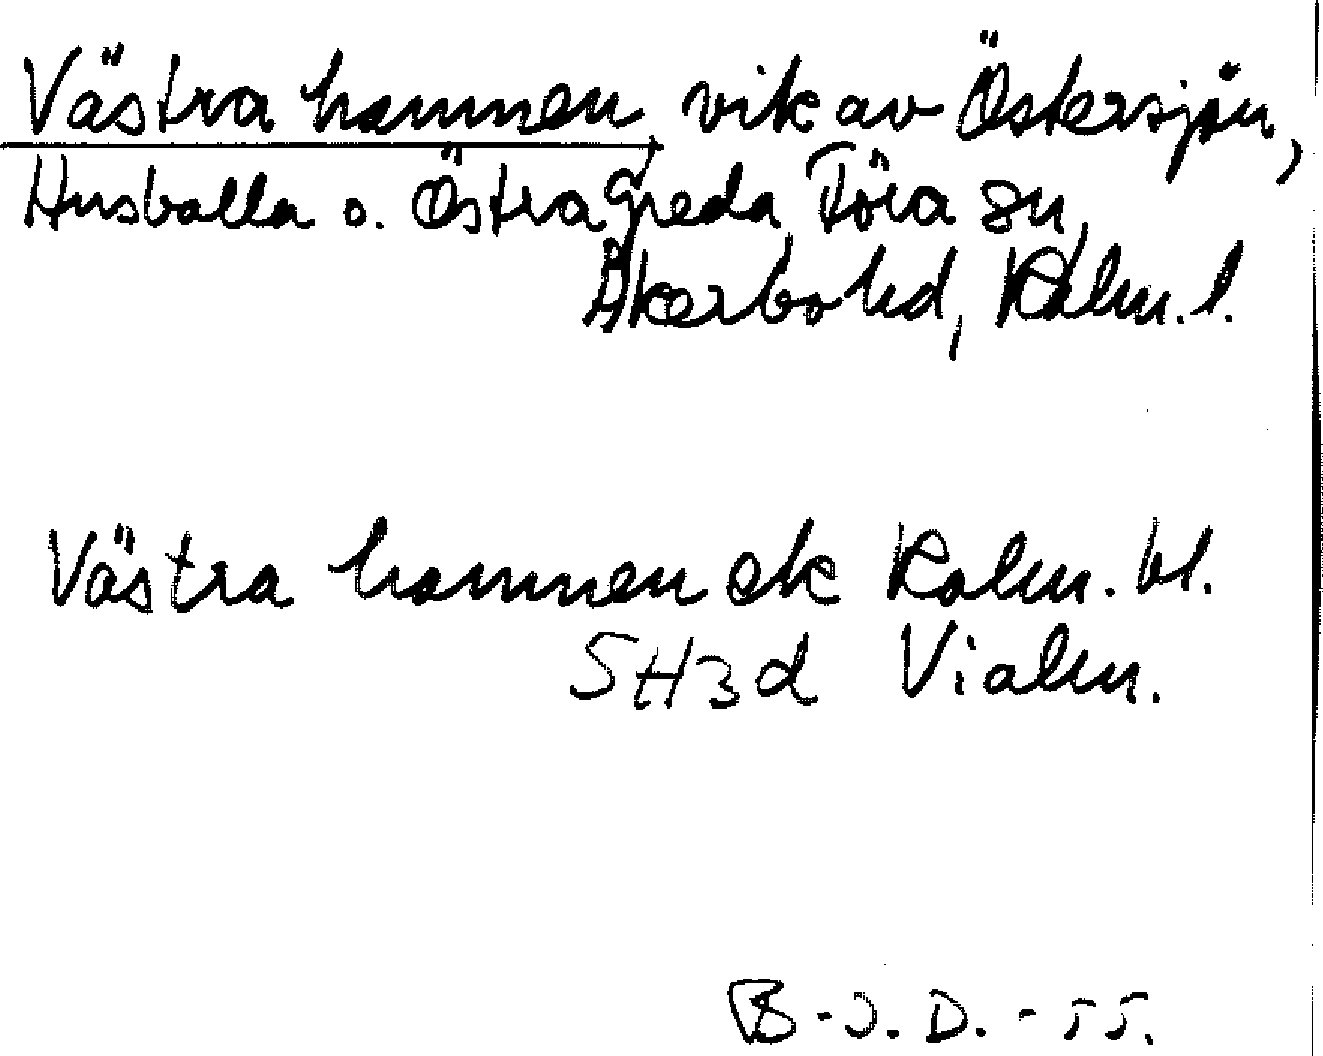 Västra hamnen, vik av Östersjön,
Husvalla o. Östra Greda, Föra sn,
Åkerbo hd, Kalm. l.
Västra hamnen ek Kalm. bl.
SH3d Vialm.
B-J. D. - 55.